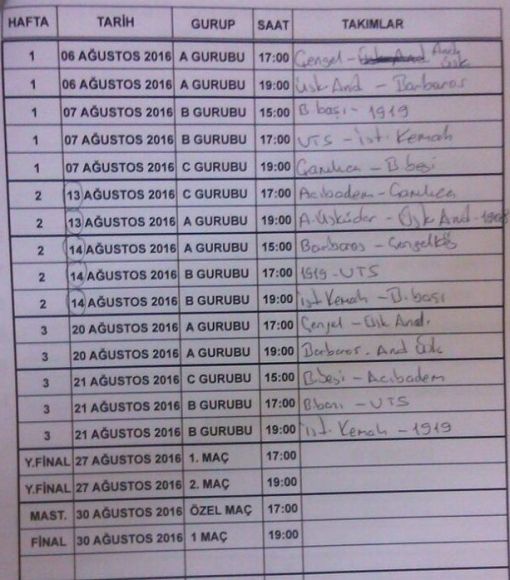 HAFTA TARİH GURUP SAAT TAKIMLAR
1 06 AĞUSTOS 2016 A GURUBU 17:00 Çengel - And. Üsk
1 06 AĞUSTOS 2016 A GURUBU 19:00 Üsk And - Barbaros
1 07 AĞUSTOS 2016 B GURUBU 15:00 B.başı - 1919
1 07 AĞUSTOS 2016 B GURUBU 17:00 UTS - İst. Kemah
1 07 AĞUSTOS 2016 C GURUBU 19:00 Çamlıca - B.beşi
2 13 AĞUSTOS 2016 C GURUBU 17:00 Acıbadem - Çamlıca
2 13 AĞUSTOS 2016 A GURUBU 19:00 A.Üsküdar - Üsk And - 1908
2 14 AĞUSTOS 2016 A GURUBU 15:00 Barbaros - Çengelköy
2 14 AĞUSTOS 2016 B GURUBU 17:00 1919 - UTS
2 14 AĞUSTOS 2016 B GURUBU 19:00 İst Kemah - B.başı
3 20 AĞUSTOS 2016 A GURUBU 17:00 Çengel - Üsk And.
3 20 AĞUSTOS 2016 A GURUBU 19:00 Barbaros. And Üsk
3 21 AĞUSTOS 2016 C GURUBU 15:00 B.beşi - Acıbadem
3 21 AĞUSTOS 2016 B GURUBU 17:00 B.başı - UTS
3 21 AĞUSTOS 2016 B GURUBU 19:00 İst. Kemah - 1919
Y.FİNAL 27 AĞUSTOS 2016 1. MAÇ 17:00
Y.FİNAL 27 AĞUSTOS 2016 2. MAÇ 19:00
MAST. 30 AĞUSTOS 2016 ÖZEL MAÇ 17:00
FİNAL 30 AĞUSTOS 2016 1 MAÇ 19:00